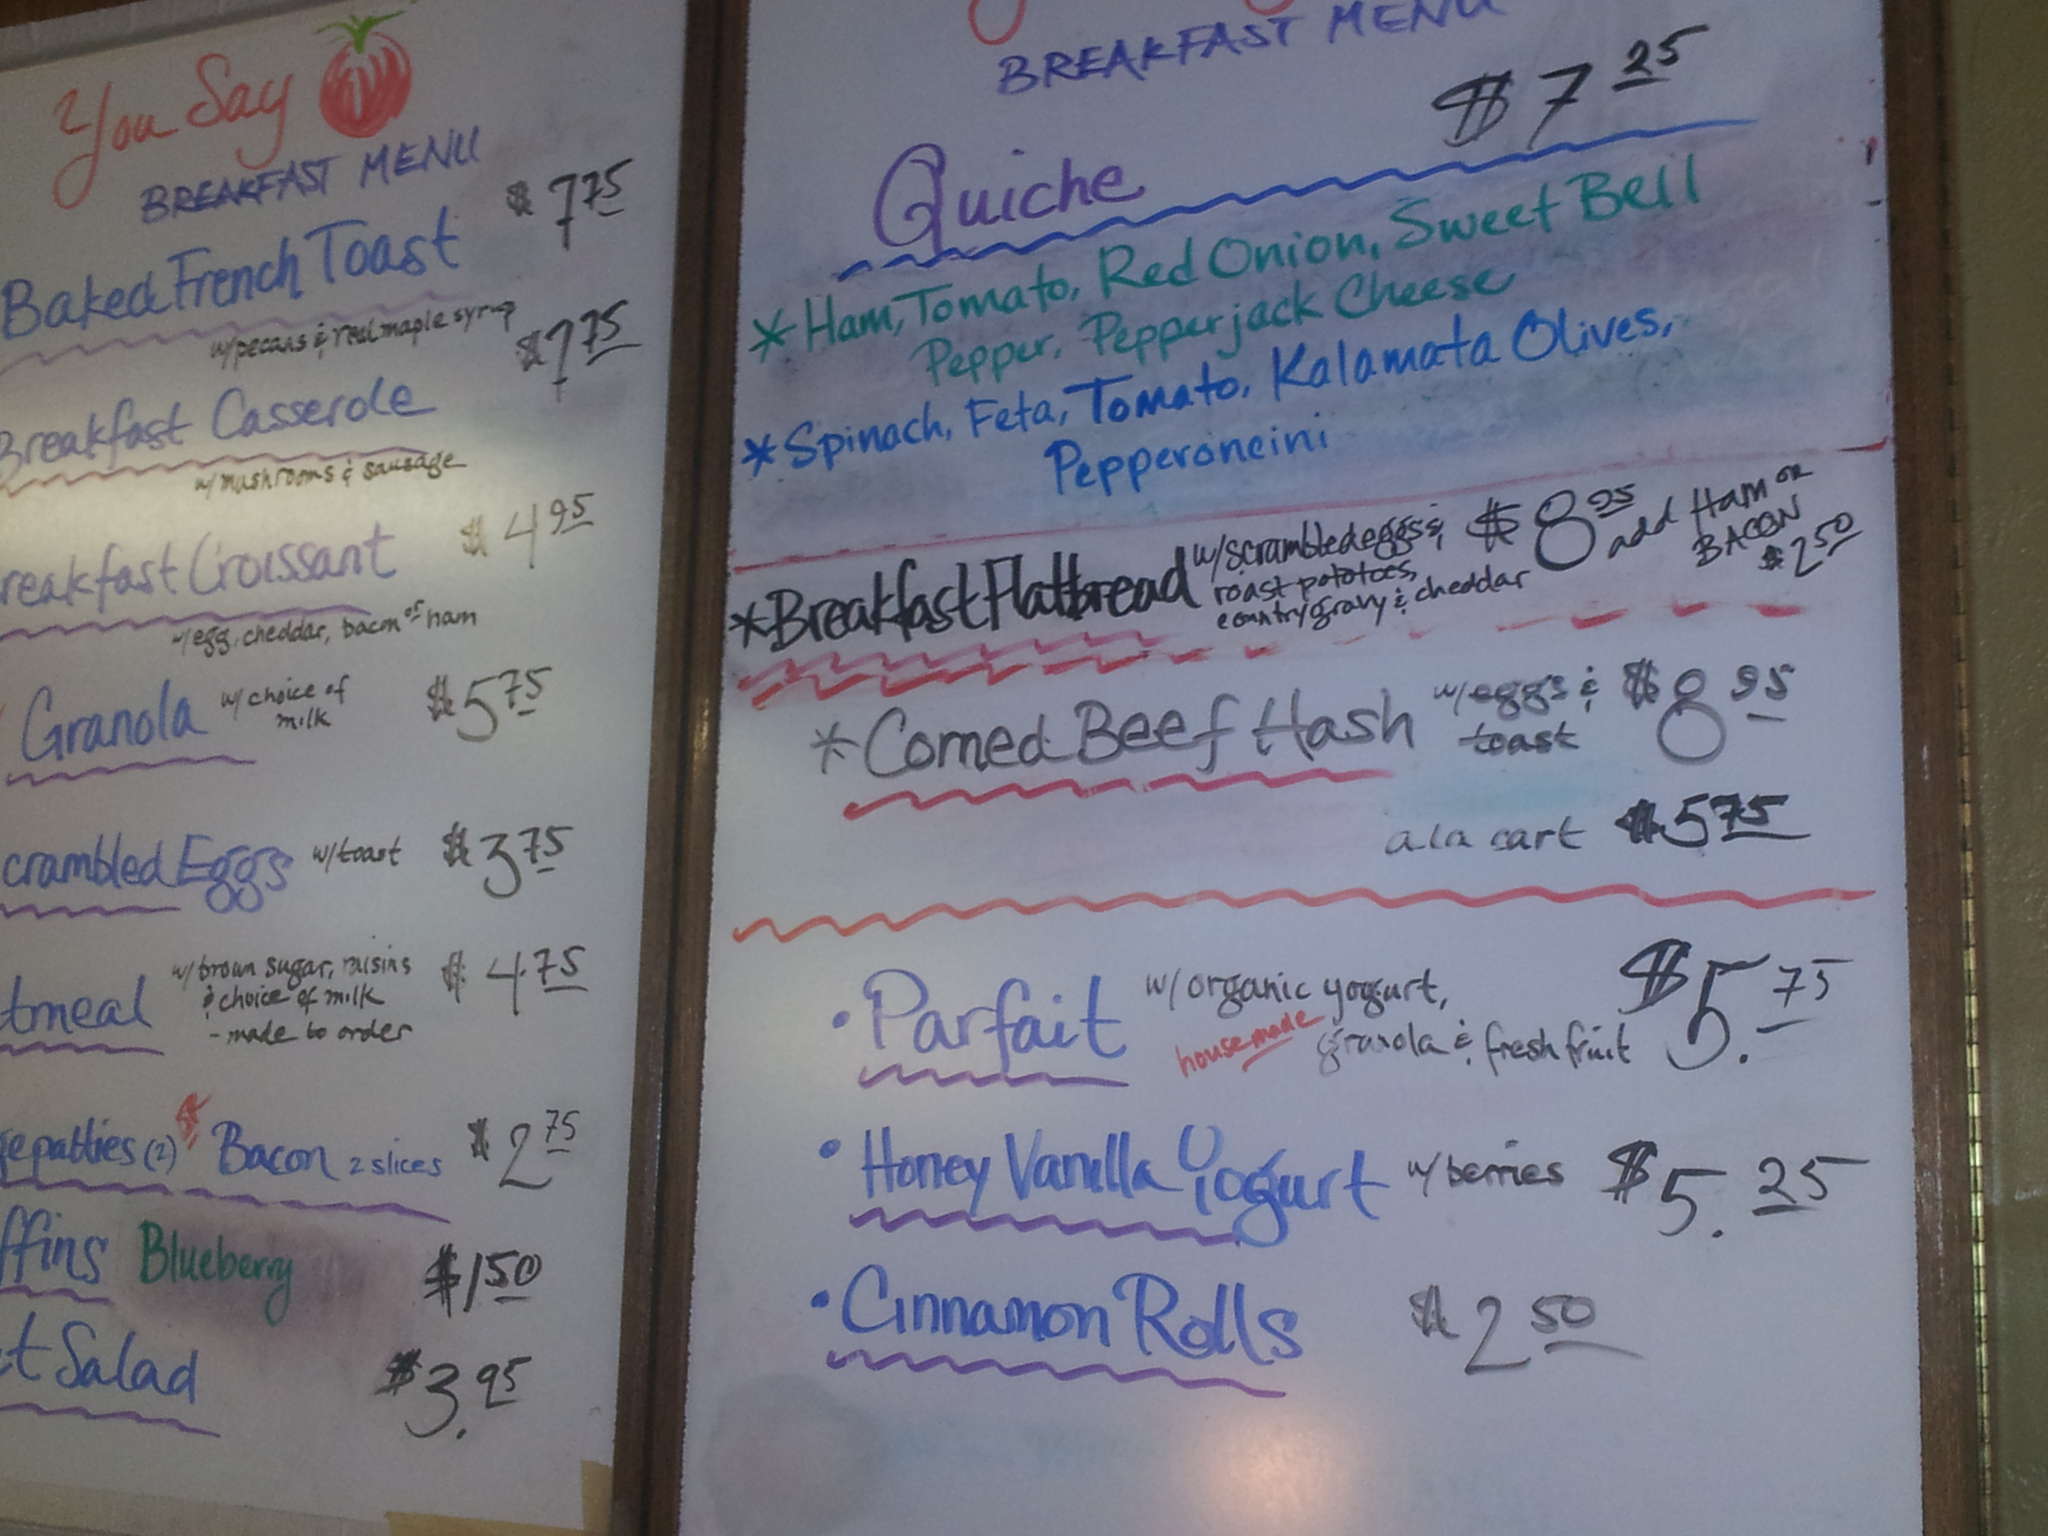 You Say
BREAKFAST MENU
Baked French Toast $775
w/pecans & real maple syrup
Breakfast Casserole $775
w/ mushrooms & sausage
reakfast Croissant $495
w/egg, cheddar, bacon or ham
Granola w/ choice of milk $575
crambled Eggs w/toast $375
tmeal w/brown sugar, raisins $4.75
& choice of milk
- made to order
epatties (2) Bacon 2 slices $275
ffins Blueberry $150
t Salad $3.95
BREAKFAST MENU
Quiche $725
* Ham, Tomato, Red Onion, Sweet Bell
Pepper, Pepperjack Cheese
* Spinach, Feta, Tomato, Kalamata Olives,
Pepperoncini
* Breakfast Flatbread w/scrambled eggs & $895 add Ham or
roast potatoes, BACON
country gravy & cheddar $250
* Corned Beef Hash w/eggs & $895
toast
a la cart $575
• Parfait w/organic yogurt, $5.75
housemade granola & fresh fruit
• Honey Vanilla Yogurt w/berries $5.25
• Cinnamon Rolls $250